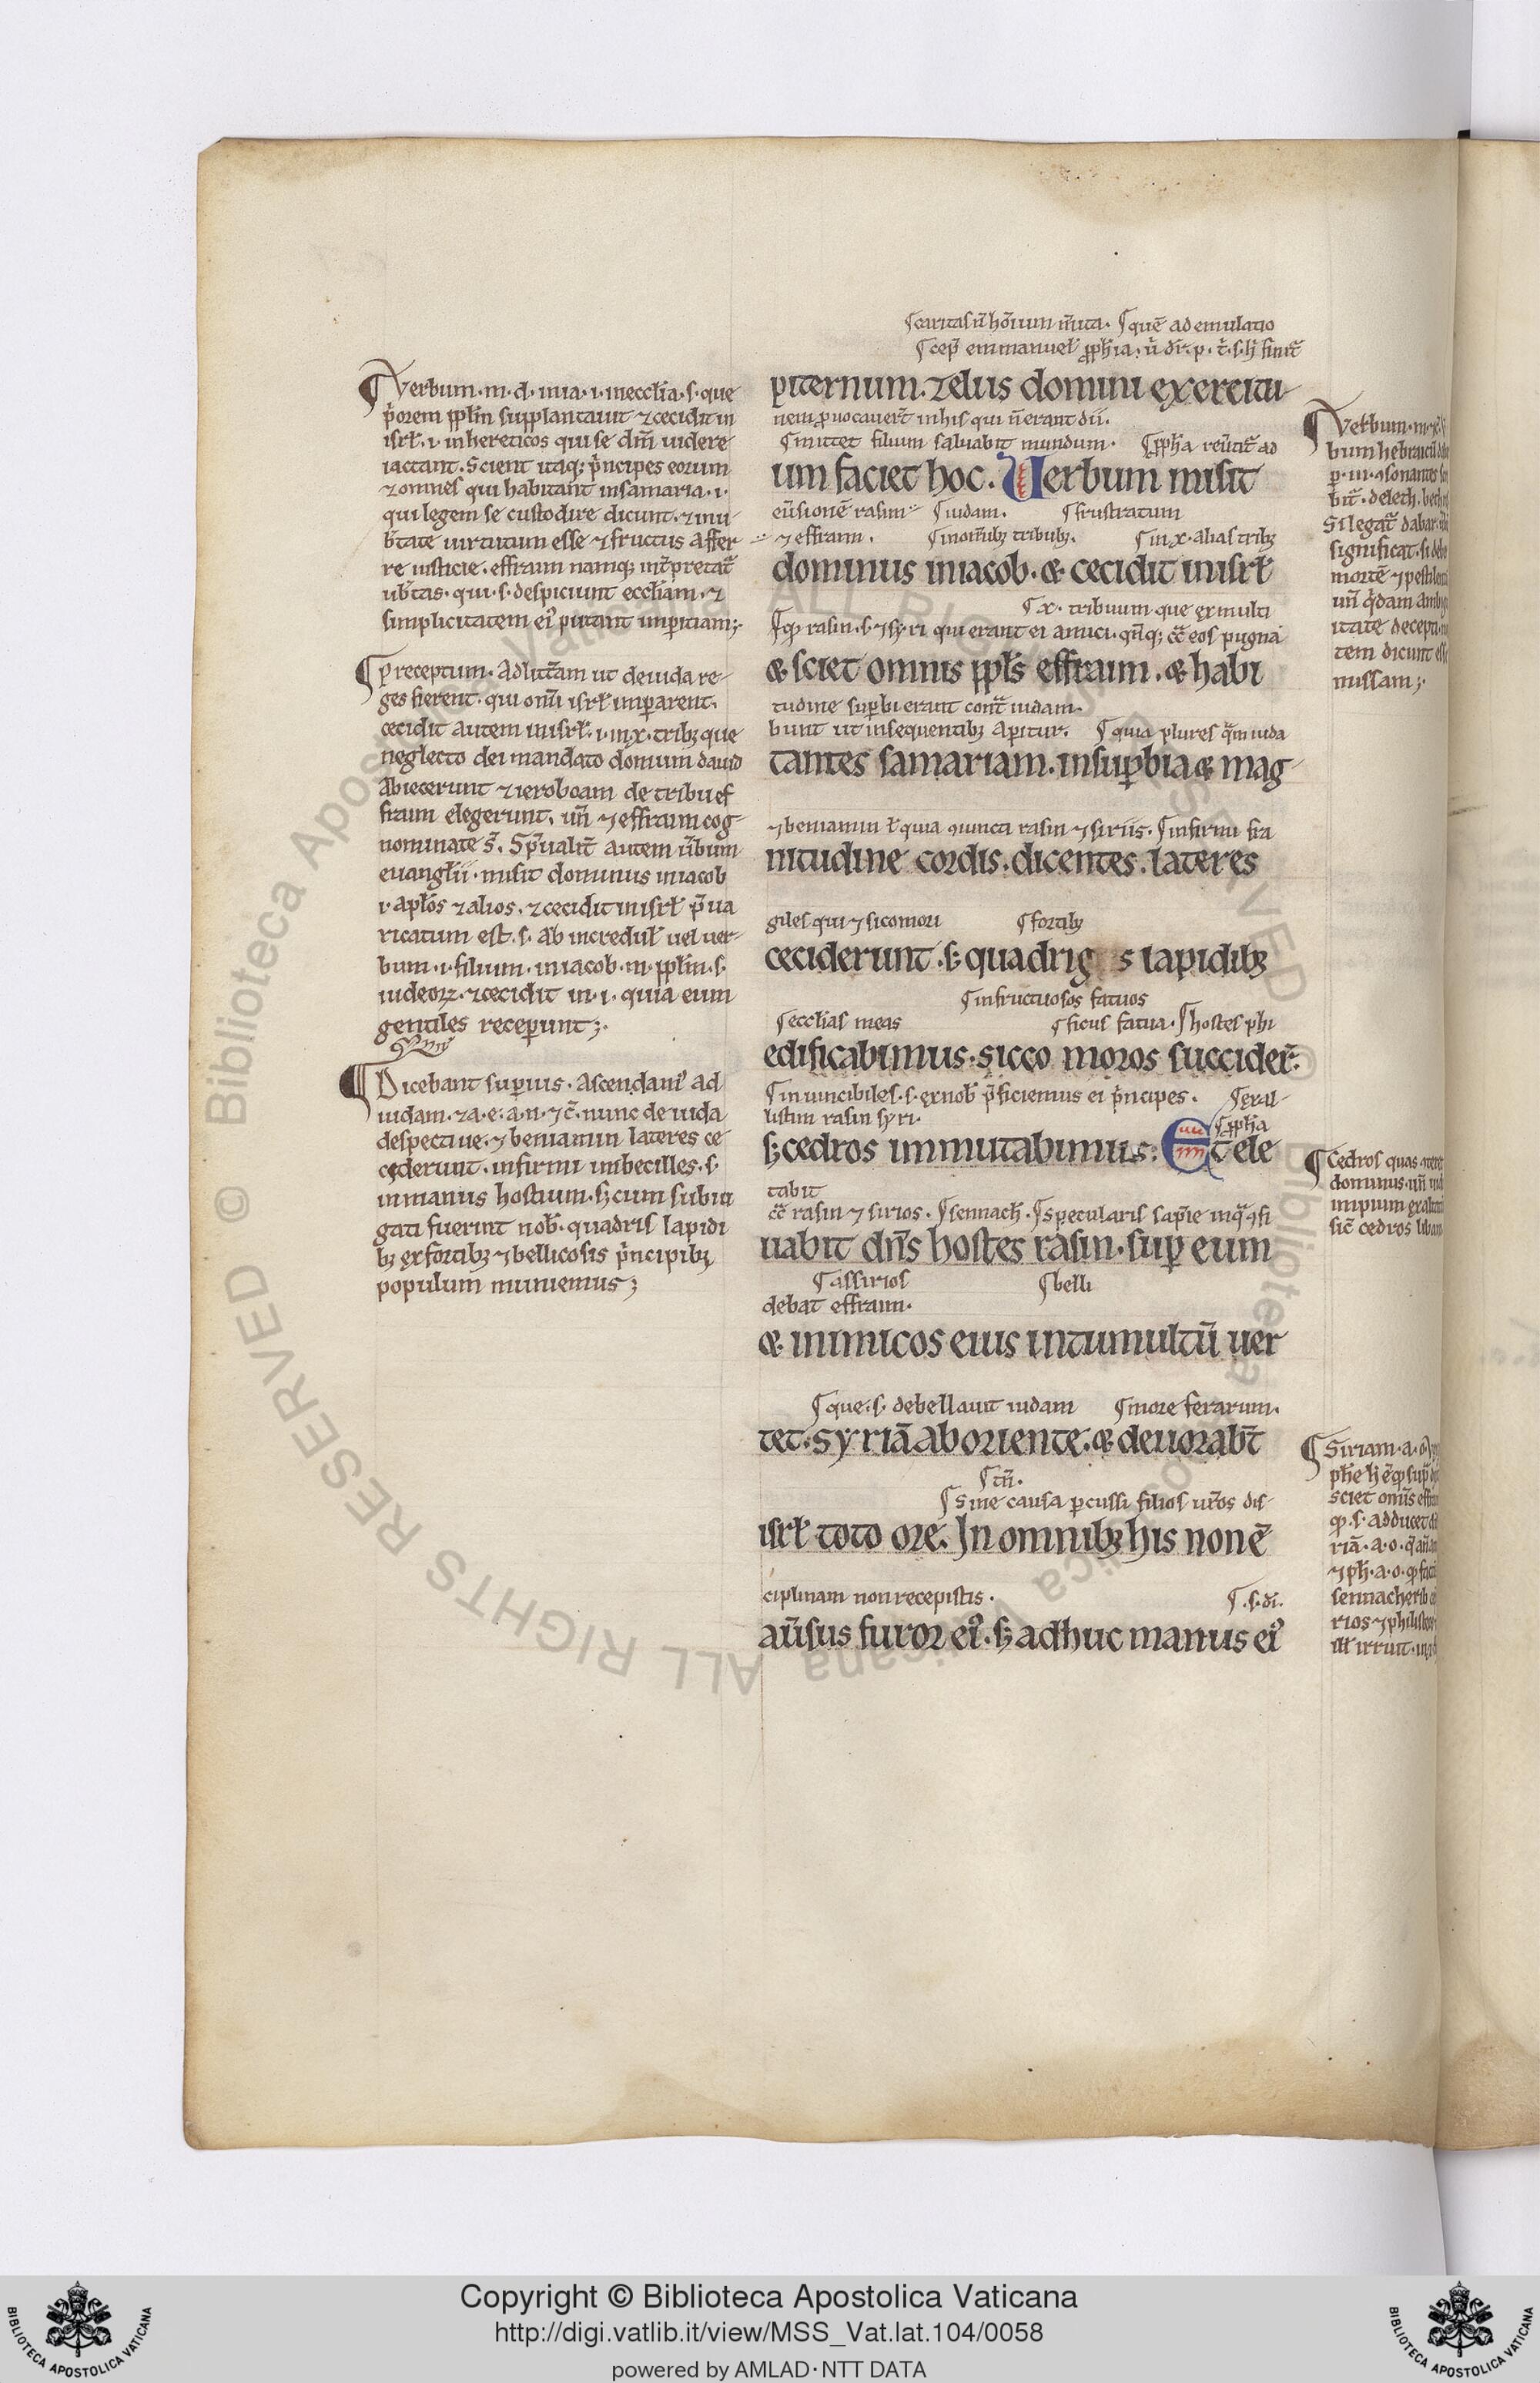 ¶ Verbum·m·d·inia·i·inecclia·s·que
priorem pplm supplantauit ⁊cecidit in
isrl·i·inhereticos qui se dnm uidere
iactant. Scient itaq; principes eorum
⁊omnes qui habitant insamaria·i·
qui legem se custodire dicunt·⁊inu
btate uirtutum esse ⁊fructus affer
re iusticie. effraim namq; interpretatur
ubertas·qui·s·despiciunt eccliam·⁊
simplicitatem ei putant imperitiam;
¶ preceptum·Adlitteram ut deiuda re-
ges fierent·qui omni isrl imperarent.
cecidit autem inisrl·i·inx·tribz que
neglecto dei mandato domum dauid
abiecerunt ⁊ieroboam de tribu ef
fraim elegerunt. un ⁊effraim cog-
nominate s. Spiritualiter autem uerbum
euanglii·misit dominus iniacob
i·aplos ⁊alios·⁊cecidit inisrl preua
ricatum est·s·ab incredul uel uer-
bum·i·filium·iniacob·in·pplm·s·
iudeorum·⁊cecidit in·i·quia eum
gentiles receperunt;
¶ Dicebant superius·Ascendam ad
iudam·⁊a·e·a·n·⁊c·nunc de iuda
despectiue·⁊ beniamin lateres ce
ciderunt·infirmi imbecilles·s·
inmanus hostium·s;cum subiu
gati fuerint nob·quadris lapidi
bz ex fortibz ⁊bellicosis principibz
populum muniemus;
¶ caritas n hominum inuita·¶ que ademulatio
¶ cep emmanuel pphia·
piternum·zelus domini exercitu
nem prouocauert inhis qui n erant dii.
¶ mittet filium saluabit mundum·¶ ppha reuertitur ad
um faciet hoc. Uerbum misit
euersione rasin ¶ iudam·¶ frustratum
⁊ effraim. ¶ inomnibz tribubz. ¶ inx·alias tribz
dominus iniacob·& cecidit inisrl
¶ x·tribuum que ex multi
¶ qp rasin·s·⁊syri qui erant ei amici·contra eos pugna
& sciet omnis ppls effraim·& habi
tudine superbi erant contra iudam·
bunt ut insequentibz aperitur. ¶ quia plures quam iuda
tantes samariam·insuperbia& mag
⁊beniamin ł quia iuncti rasin ⁊ siriis. ¶ infirmi fra
nitudine cordis·dicentes·lateres
giles qui ⁊sicomori ¶ fortibz
ceciderunt·s;quadrig s lapidibz
¶ infructuosos fatuos
¶ ecclias meas ¶ ficus fatua·¶ hostes phi
edificabimus·sicco moros succider
¶ inuincibiles·s·ex nob preficiemus ei principes·¶ exal-
listim rasin syri· ¶ ppha
s;cedros immutabimus: Et ele
tabit
contra rasin ⁊ sirios·¶ sennach·¶ specularis
uabit dns hostes rasin·super eum
¶ assirios ¶ belli
debat effraim·
& inimicos eius intumultu uer
¶ que·s·debellauit iudam ¶ more ferarum.
tet·syriam aboriente·& deuorabt
¶ tn.
¶ sine causa percussi filios uros dis-
isrl toto ore. In omnibz his non e
ciplinam nonrecepistis· ¶ ·s·di.
auersus furor ei·s;adhuc manus ei
¶ Verbum·
bum hebraicu
Si legatur dabar
significat·si debe
morte ⁊pestilen
un quidam ambig
itate decepti
tem dicunt esse
missam;
¶ Cedros quas
dominus·
impium exaltat
sic cedros liban
¶ Siriam·a·o
sciet omnis effra
qp·s·adducet
riam·a·o·
⁊ph·a·o·
sennacherib
rios ⁊philist
illis irruit·
© Biblioteca Apostolica Vaticana ALL RIGHTS RESERVED © Biblioteca Apostolica Vaticana ALL RIGHTS RESERVED
Copyright © Biblioteca Apostolica Vaticana
http://digi.vatlib.it/view/MSS_Vat.lat.104/0058
powered by AMLAD·NTT DATA
BIBLIOTECA APOSTOLICA VATICANA
BIBLIOTECA APOSTOLICA VATICANA